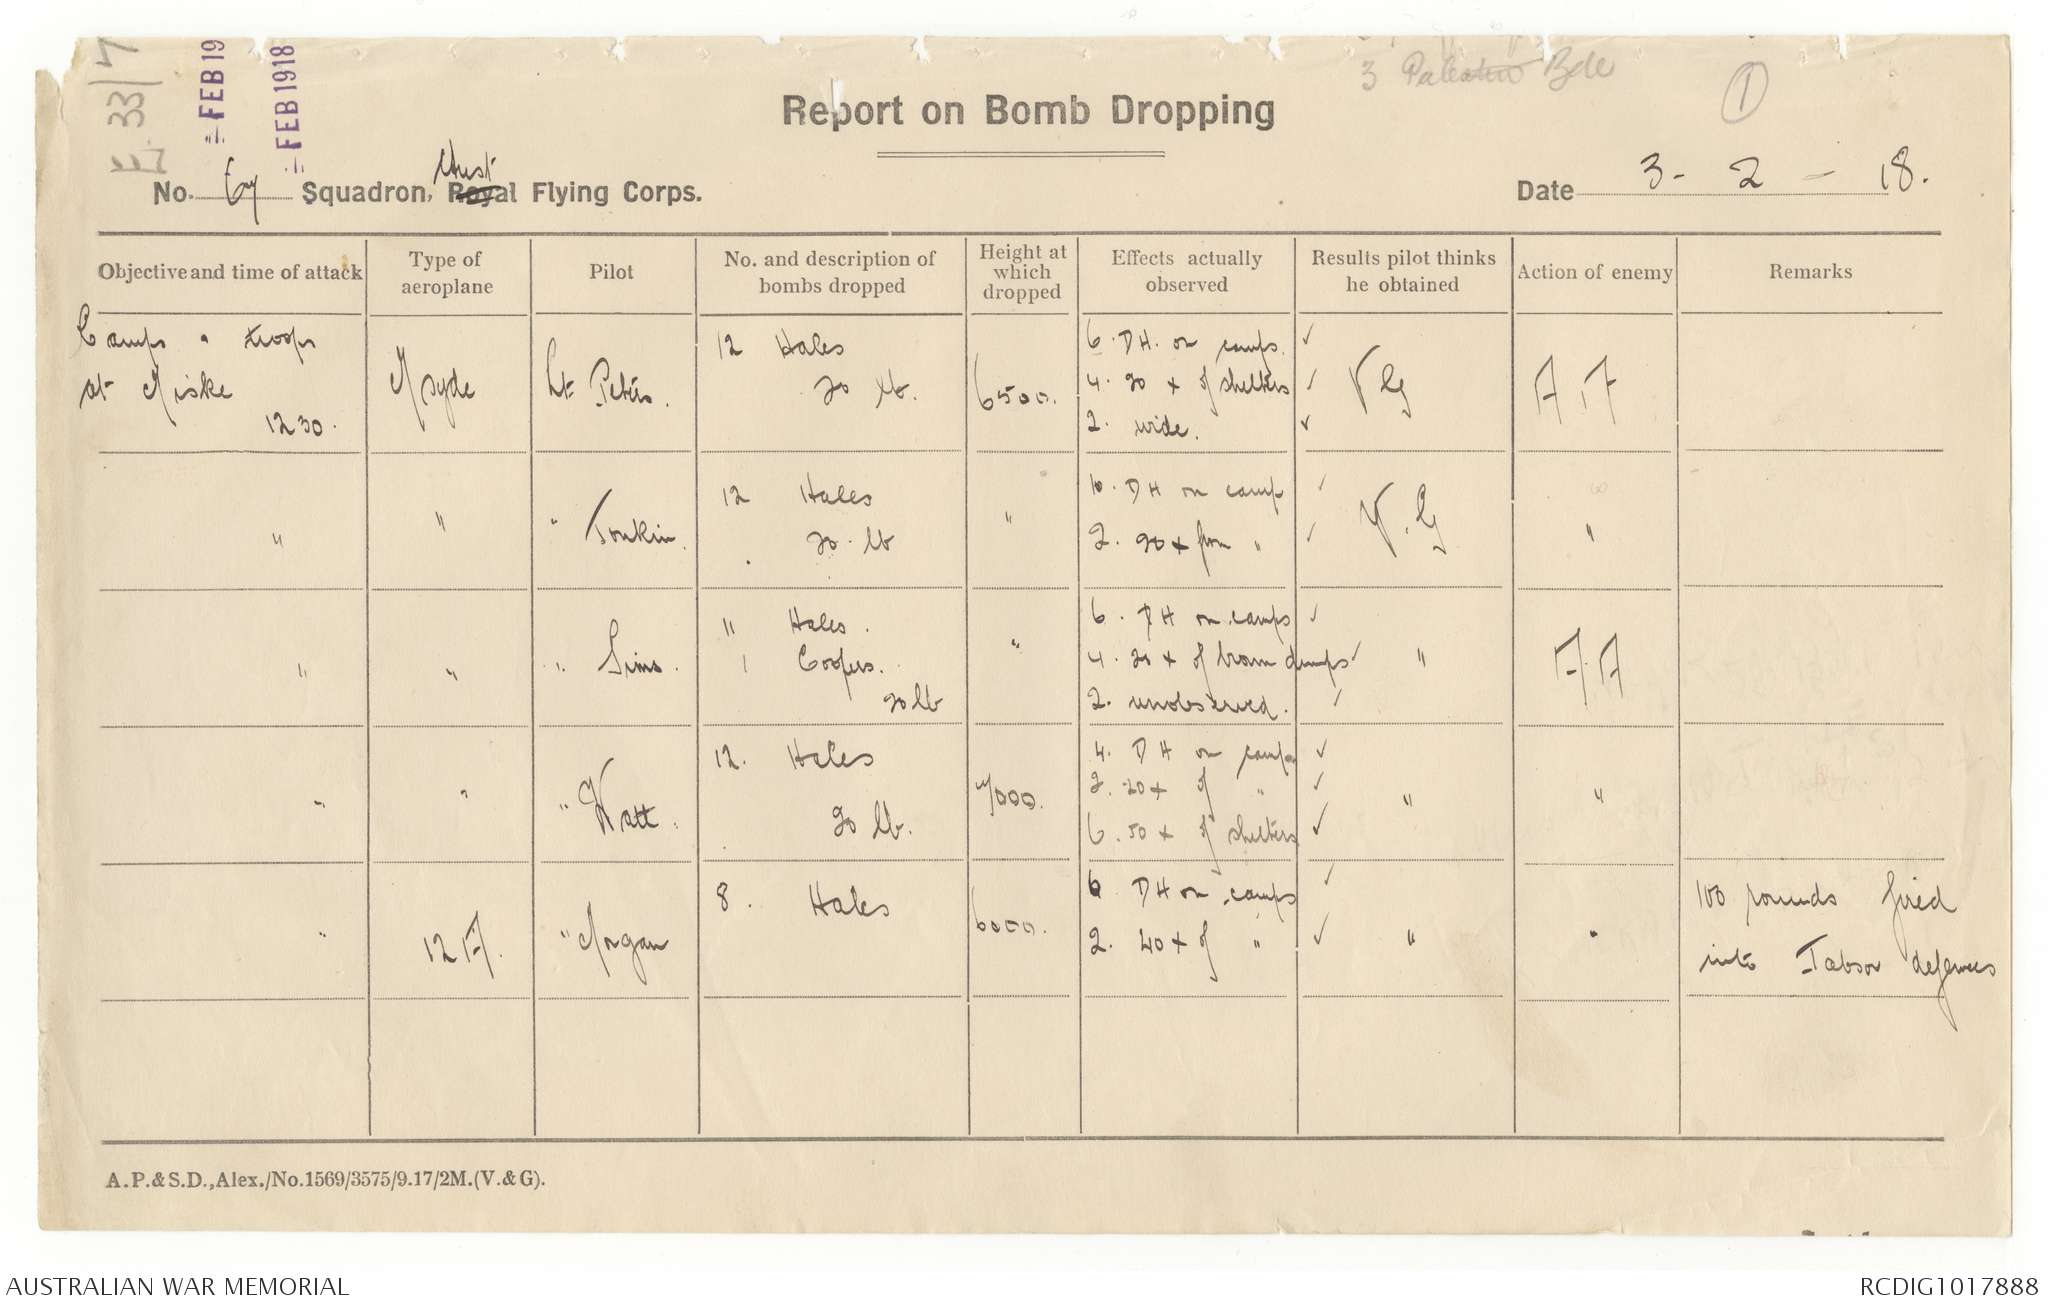 E 33/7
= FEB 19
= FEB 1918
3 Palestine Bde
1
Report on Bomb Dropping
No. 67 Squadron, Royal Aust Flying Corps.
Date 3 - 2 - 18.
Objective and time of attack
Type of aeroplane
Pilot
No. and description of bombs dropped
Height at which dropped
Effects actually observed
Results pilot thinks he obtained
Action of enemy
Remarks
Camps & troops
at Miske
1230.
Msyde
Lt Peters.
12 Hales
20 lb.
6500.
6. DH. on camps. ✓
4. 20 x of shelters ✓
2. wide. ✓
VG
"
"
" Tonkin.
12 Hales
20 lb
"
10. DH on camp ✓
2. 20 x from " ✓
V.G
"
"
"
" Sims.
11 Hales.
1 Coopers.
20 lb
"
6. DH on camps ✓
4. 20 x of dumps ✓
2. unobserved. ✓
"
A.A
"
"
" Watt.
12. Hales
20 lb.
7000.
4. DH on camps ✓
2. 20 x of " ✓
6. 50 x of shelters ✓
"
"
"
12A.
" Morgan
8. Hales
6000.
6 DH on camps ✓
2. 40 x of " ✓
"
"
100 rounds fired
into Tabsor defences
A.P.&S.D.,Alex./No.1569/3575/9.17/2M.(V.&G).
AUSTRALIAN WAR MEMORIAL
RCDIG1017888